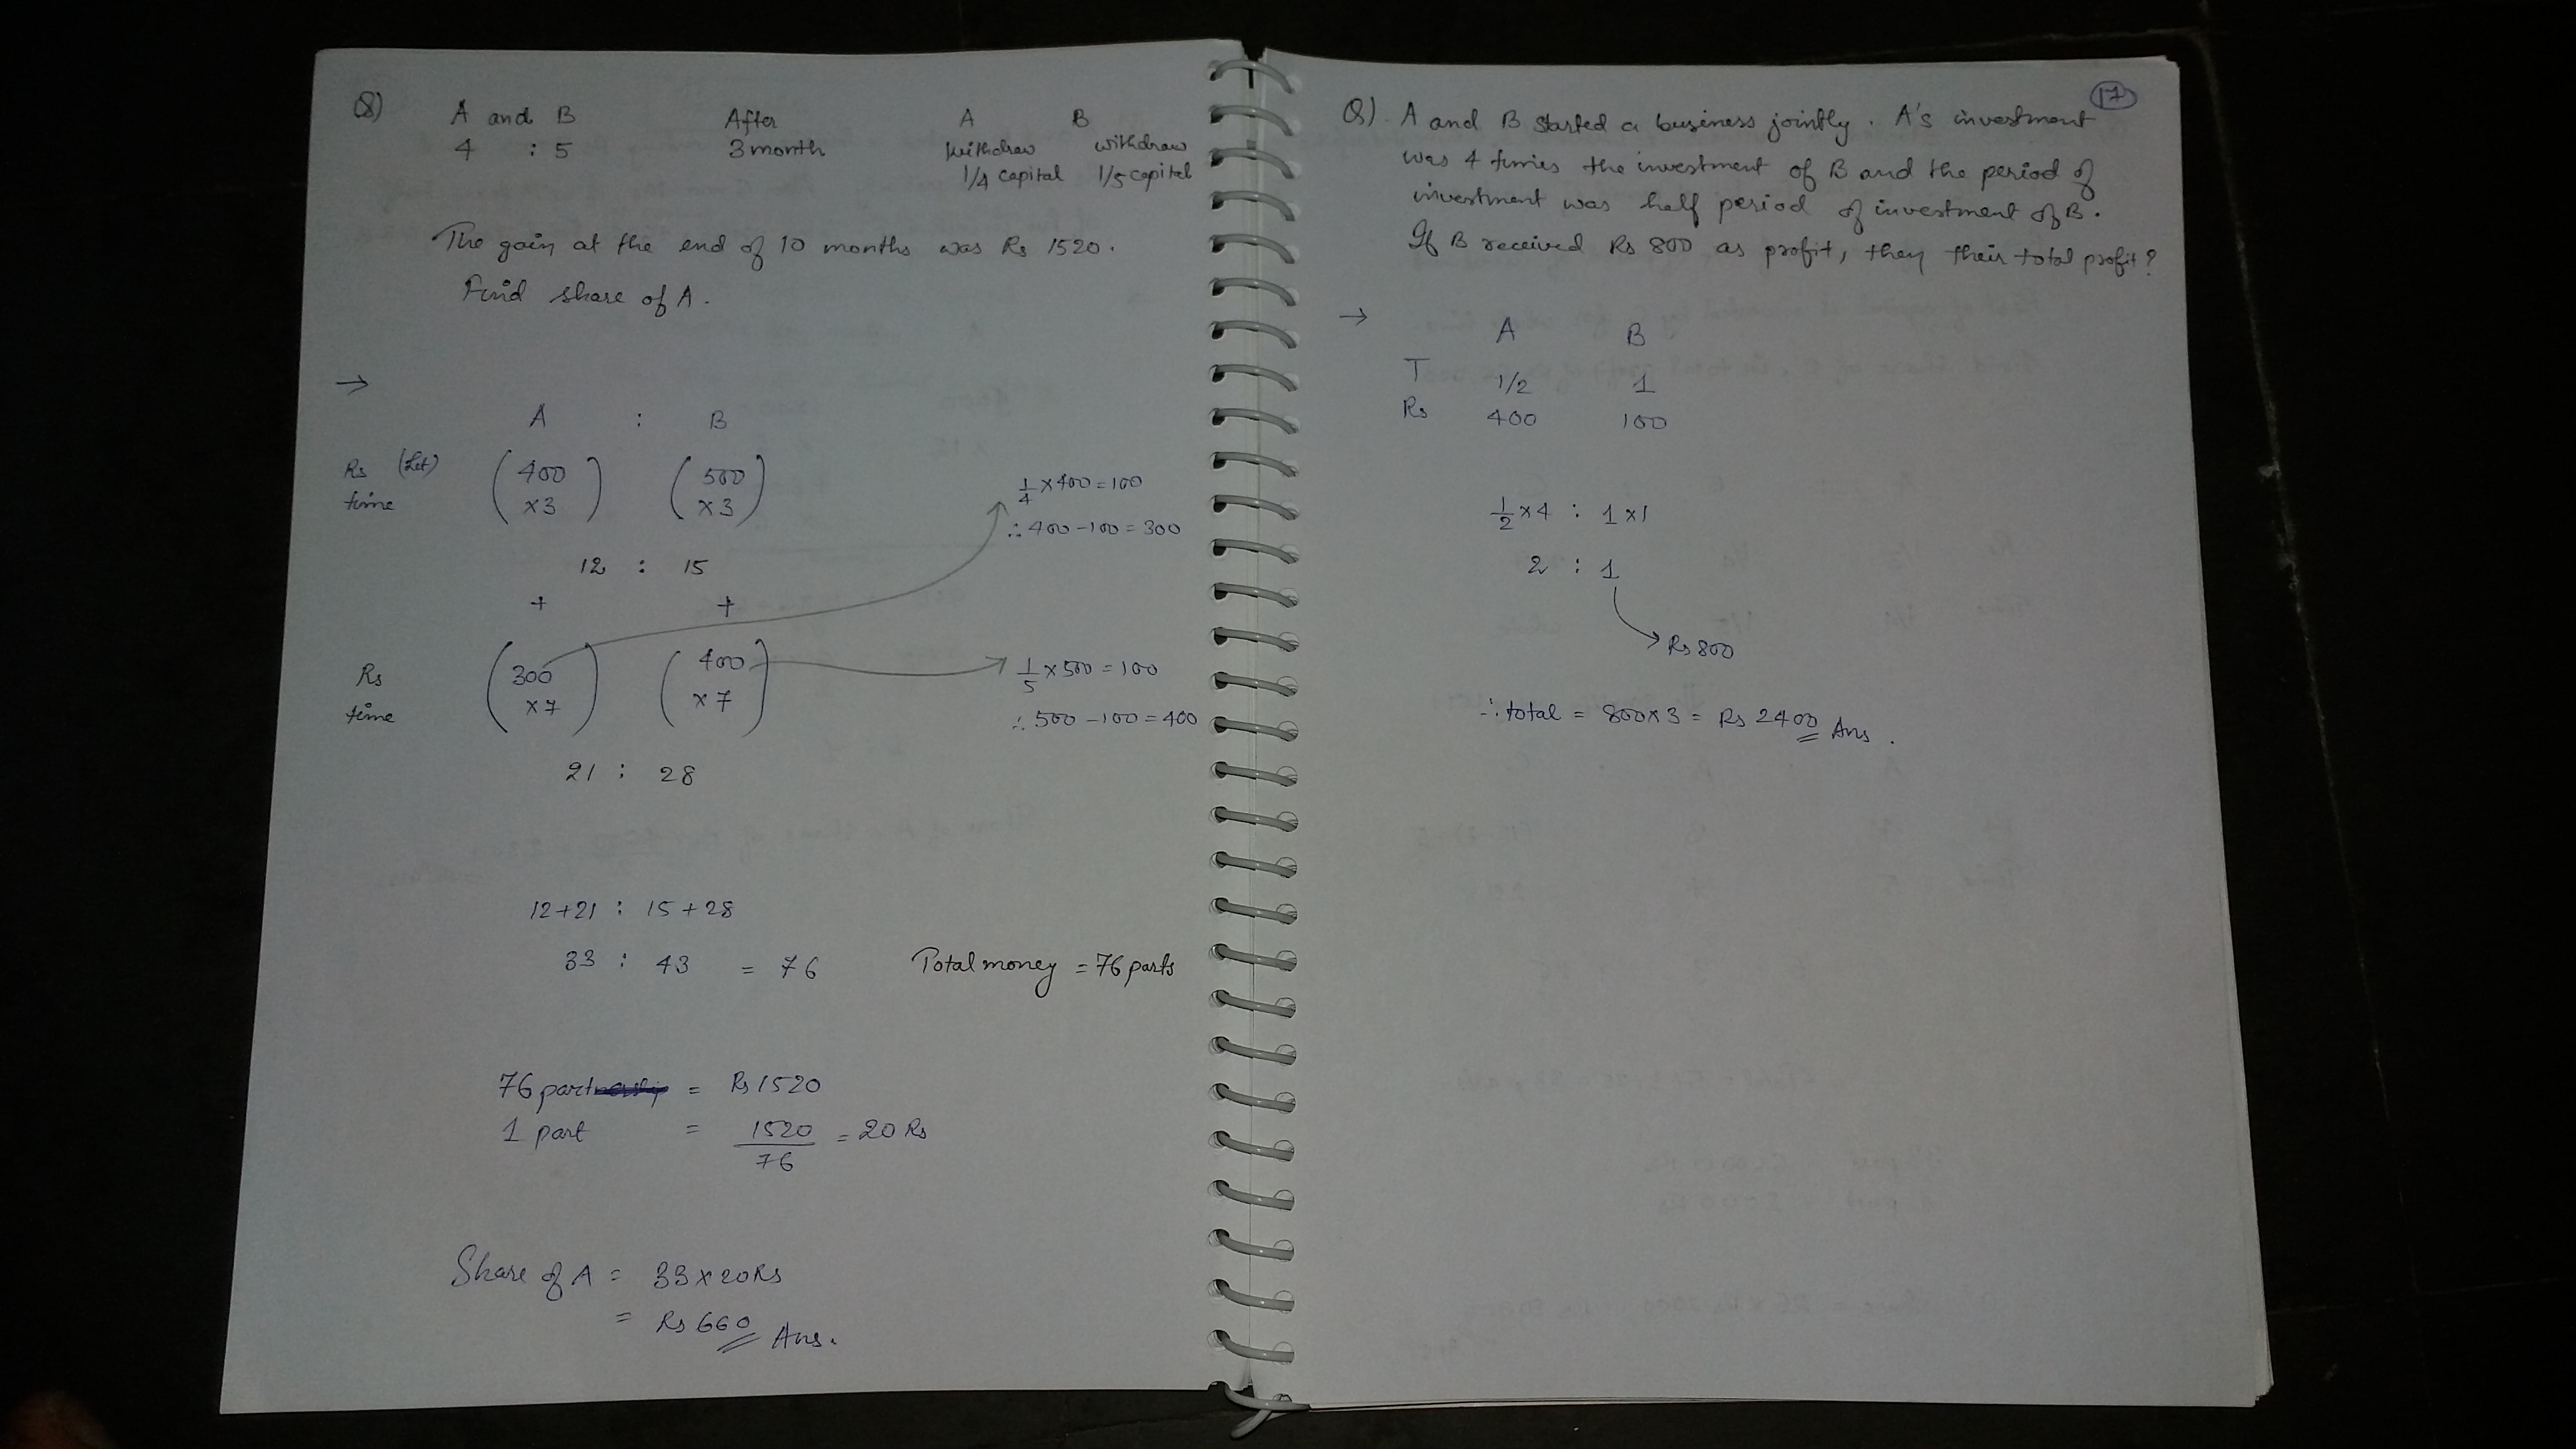 Q) A and B After A B
4 : 5 3 month withdraw withdraw
1/4 capital 1/5 capital
The gain at the end of 10 months was Rs 1520.
Find share of A.
→
A : B
Rs (Let) (400 (500
time ×3) ×3)
1/4 × 400 = 100
∴ 400 - 100 = 300
12 : 15
+ +
Rs (300 (400
time ×7) ×7)
1/5 × 500 = 100
∴ 500 - 100 = 400
21 : 28
12+21 : 15+28
33 : 43 = 76 Total money = 76 parts
76 part = Rs 1520
1 part = 1520/76 = 20 Rs
Share of A = 33 × 20 Rs
= Rs 660 Ans.
17
Q). A and B started a business jointly. A's investment
was 4 times the investment of B and the period of
investment was half period of investment of B.
If B received Rs 800 as profit, they their total profit?
→
A B
T 1/2 1
Rs 400 100
1/2 × 4 : 1 × 1
2 : 1
Rs 800
∴ total = 800×3 = Rs 2400 Ans.